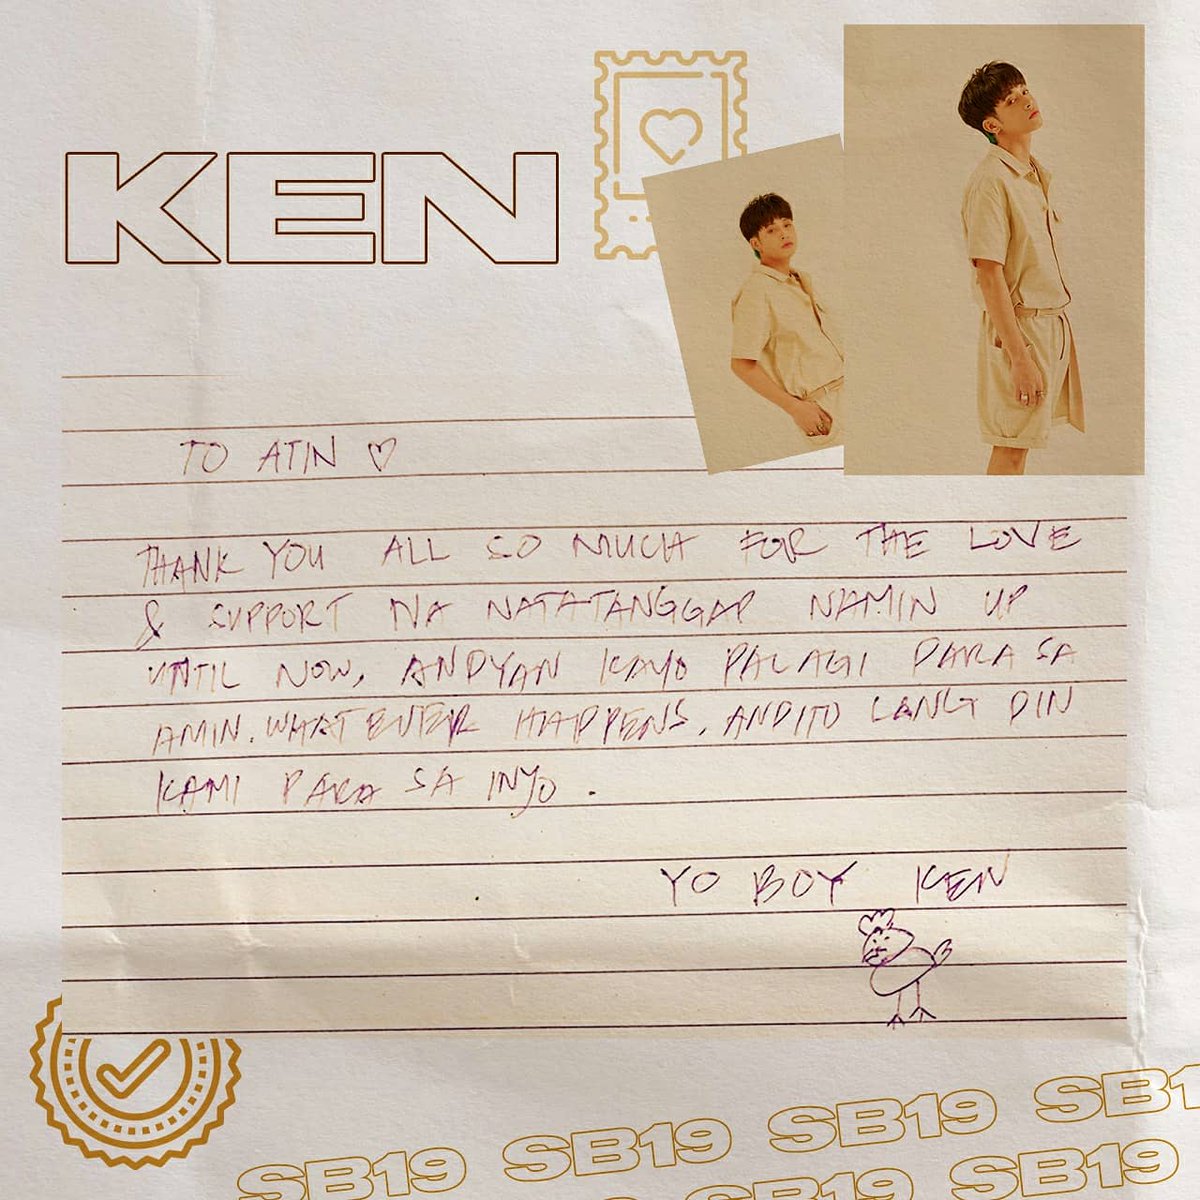 KEN
TO ATIN ♡
THANK YOU ALL SO MUCH FOR THE LOVE
& SUPPORT NA NATATANGGAP NAMIN UP
UNTIL NOW, ANDYAN KAYO PALAGI PARA SA
AMIN. WHATEVER HAPPENS, ANDITO LANG DIN
KAMI PARA SA INYO.
YO BOY KEN
SB19 SB19 SB19 SB1
SB19 SB19